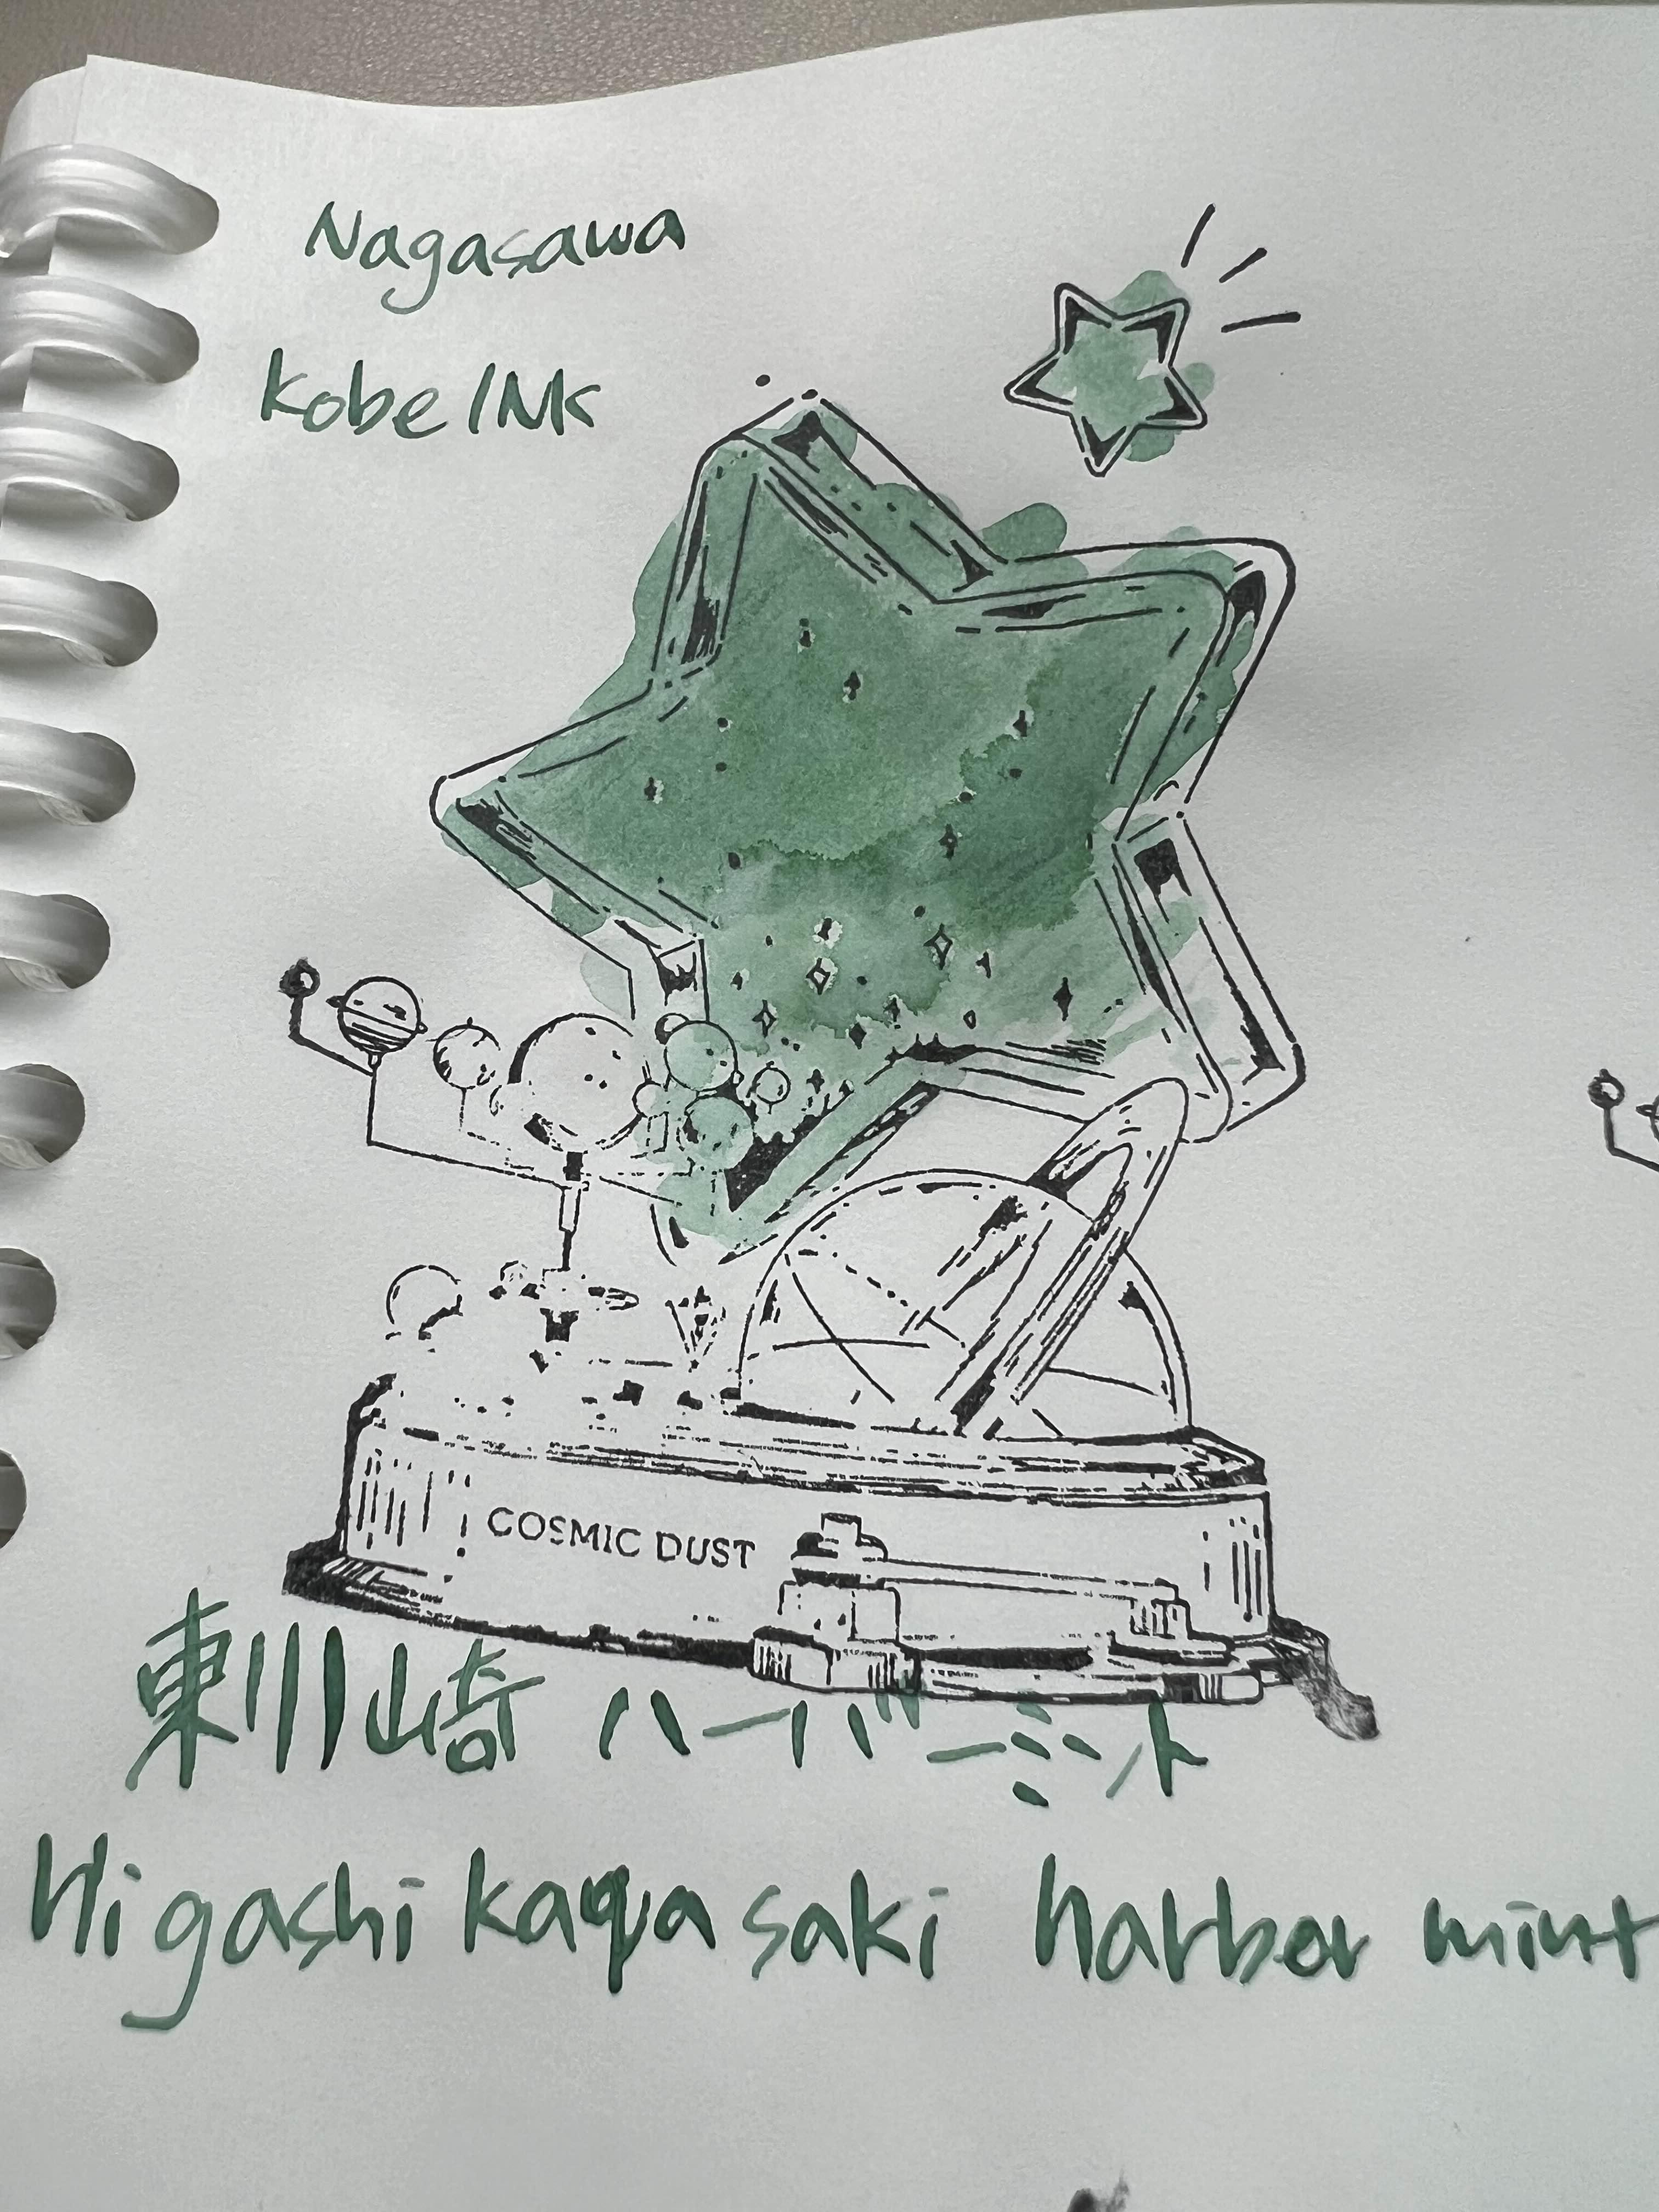 Nagasawa
Kobe INK
COSMIC DUST
東川崎 ハーバーミント
Higashi kawasaki harbor mint